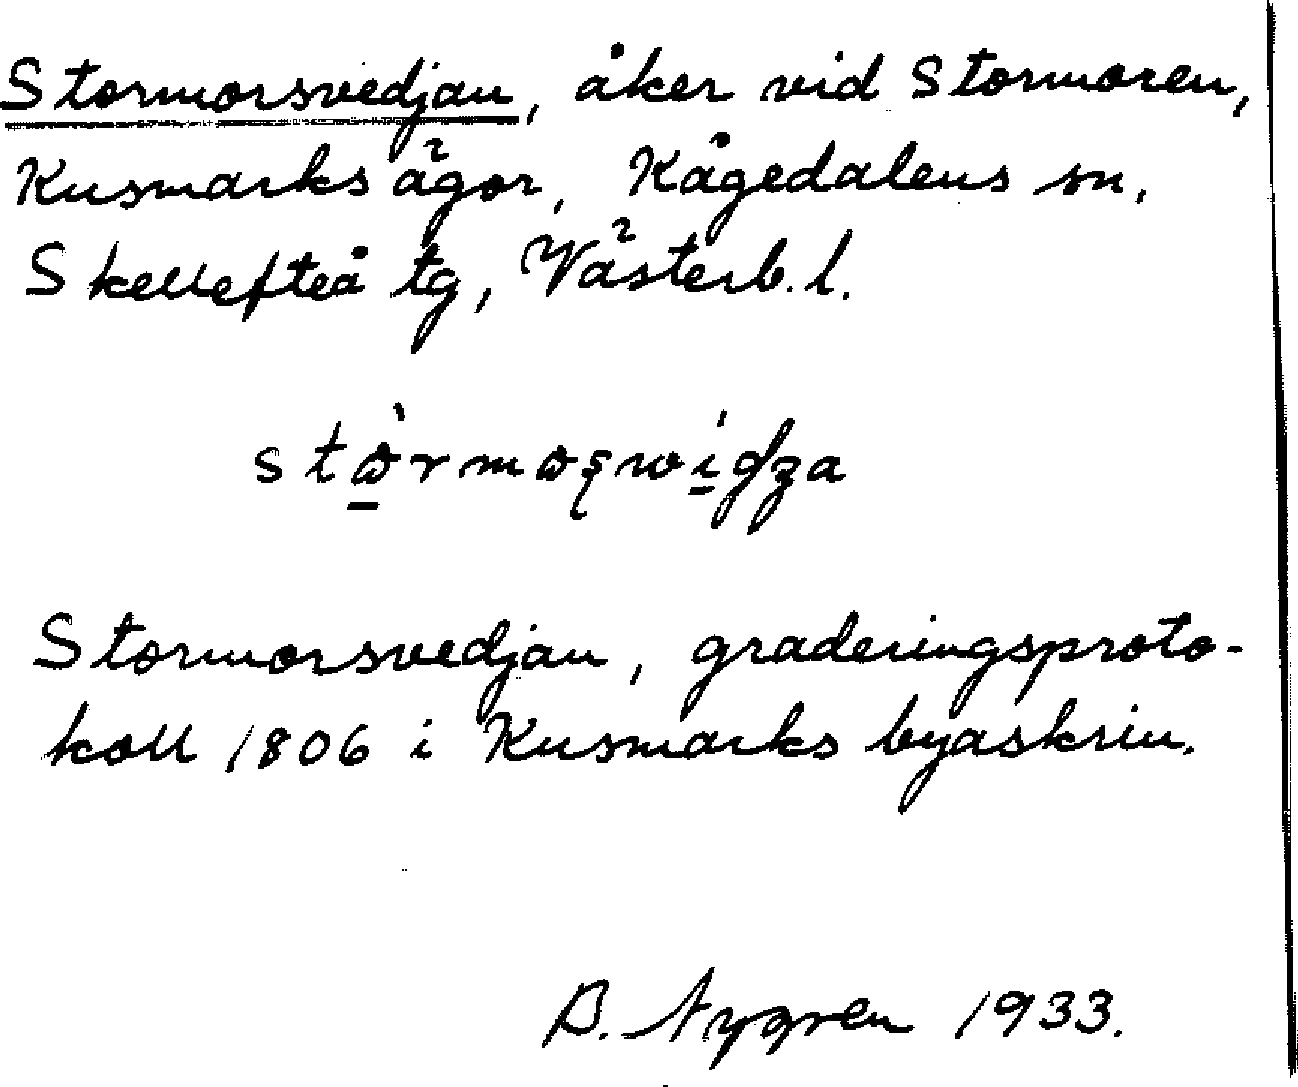 Stormorsvedjan, åker vid Stormoren,
Kusmarks ägor, Kågedalens sn,
Skellefteå tg, Västerb. l.
Stormorsvedjan, graderingsproto-
koll 1806 i Kusmarks byaskrin.
B. Nygren 1933.